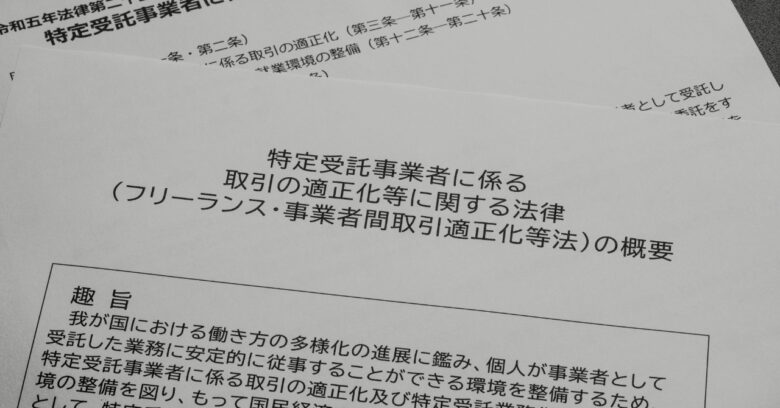 令和五年法律第二十
特定受託事業者に
条・第二条)
に係る取引の適正化(第三条―第十一条)
就業環境の整備(第十二条―第二十条)
者として受託し
委託をす
を
特定受託事業者に係る
取引の適正化等に関する法律
(フリーランス・事業者間取引適正化等法)の概要
趣旨
我が国における働き方の多様化の進展に鑑み、個人が事業者として
受託した業務に安定的に従事することができる環境を整備するため
特定受託事業者に係る取引の適正化及び特定受託業務
境の整備を図り、もって国民経済
として、特定